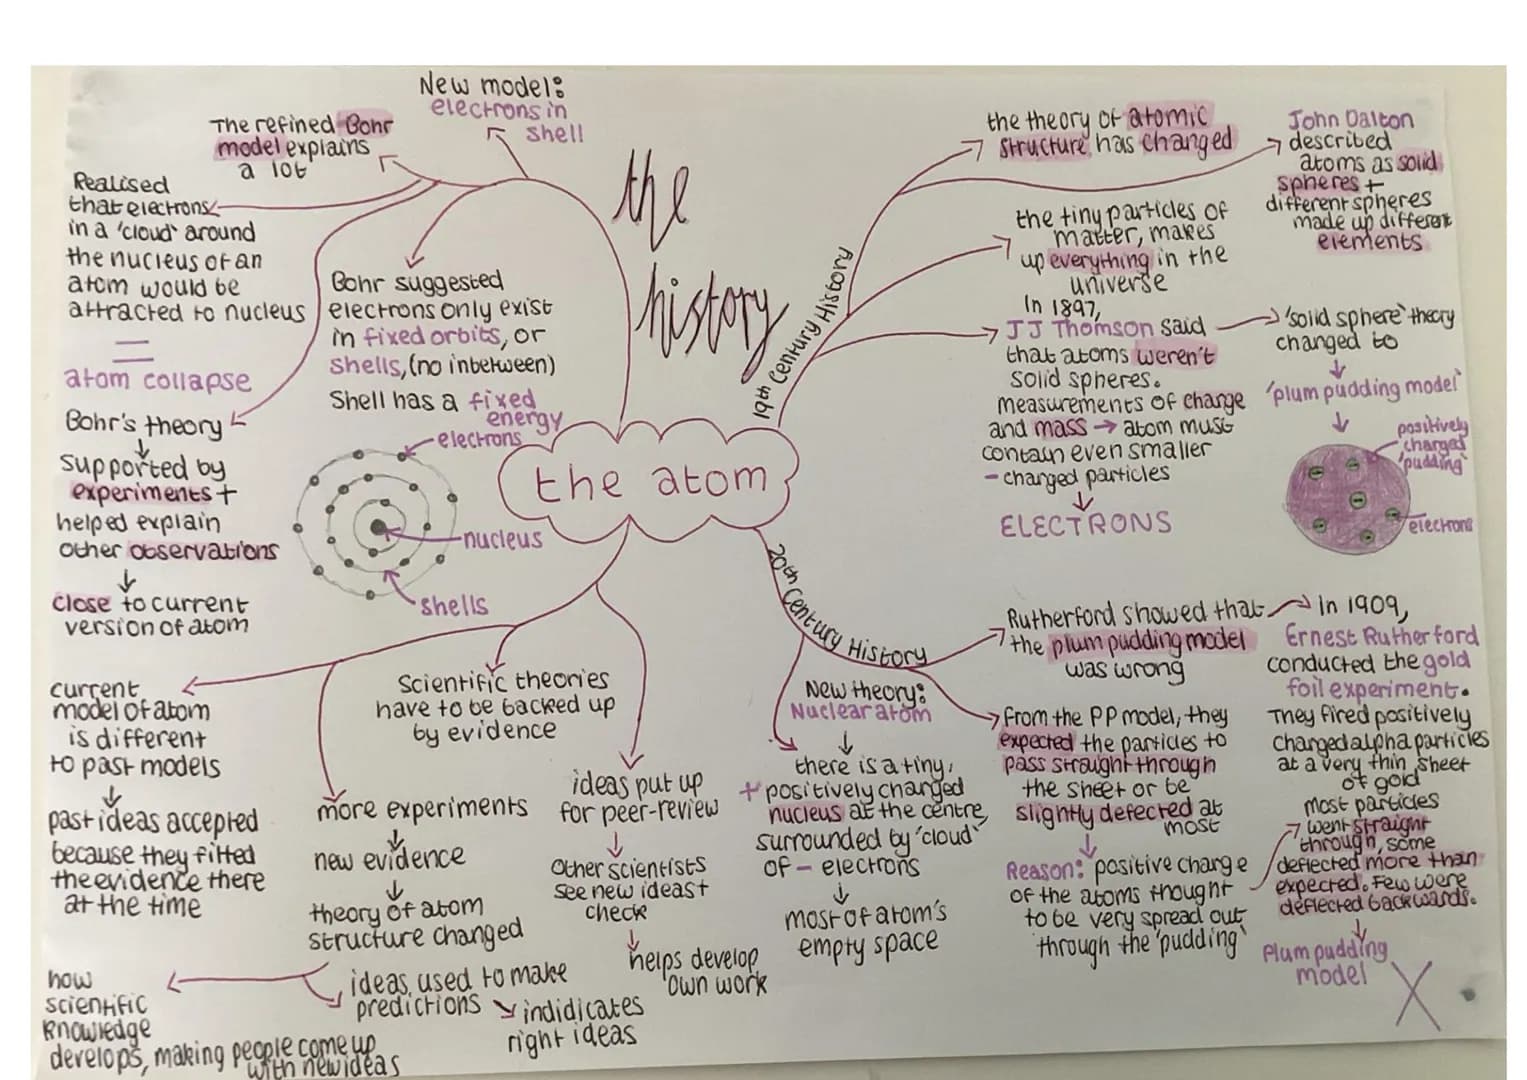 the
history
the atom
19th Century History
the theory of atomic
structure has changed
John Dalton
described
atoms as solid
spheres +
different spheres
made up different
elements
the tiny particles of
matter, makes
up everything in the
universe
In 1897,
JJ Thomson said
that atoms weren't
solid spheres.
measurements of charge
and mass → atom must
contain even smaller
- charged particles
↓
ELECTRONS
'solid sphere' theory
changed to
↓
'plum pudding model'
↓
positively
charged
'pudding'
electrons
20th Century History
Rutherford showed that
the plum pudding model
was wrong
In 1909,
Ernest Rutherford
conducted the gold
foil experiment.
They fired positively
charged alpha particles
at a very thin sheet
of gold
from the PP model, they
expected the particles to
pass straight through
the sheet or be
slightly defected at
most
↓
Reason: positive charge
of the atoms thought
to be very spread out
through the 'pudding'
most particles
went straight
through, some
deflected more than
expected. Few were
deflected backwards.
↓
Plum pudding
model X
New theory:
Nuclear atom
↓
there is a tiny,
+ positively charged
nucleus at the centre,
surrounded by 'cloud'
of - electrons
↓
most of atom's
empty space
New model:
electrons in
shell
The refined Bohr
model explains
a lot
Realised
that electrons
in a 'cloud' around
the nucleus of an
atom would be
attracted to nucleus
=
atom collapse
Bohr suggested
electrons only exist
in fixed orbits, or
shells, (no inbetween)
Shell has a fixed
energy
electrons
nucleus
shells
Bohr's theory
↓
supported by
experiments +
helped explain
other observations
↓
close to current
version of atom
Scientific theories
have to be backed up
by evidence
current
model of atom
is different
to past models
↓
past ideas accepted
because they fitted
the evidence there
at the time
more experiments
↓
new evidence
↓
theory of atom
structure changed
ideas, used to make
predictions ↘ indidicates
right ideas
how
scientific
knowledge
develops, making people come up
with new ideas
ideas put up
for peer-review
↓
Other scientists
see new ideas +
check
↓
helps develop
own work